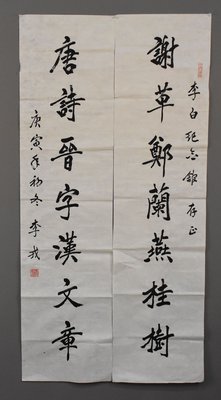 李白纪念馆存正
謝草鄭蘭燕桂樹
唐詩晉字漢文章
庚寅年初冬 李戎